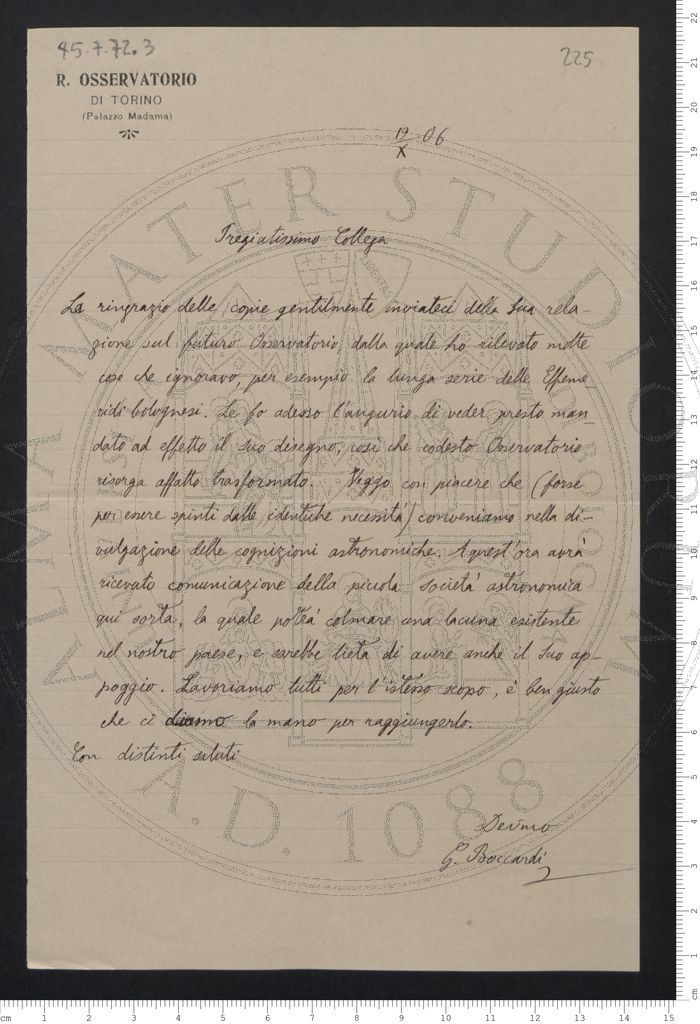 45.7.72.3
225
R. OSSERVATORIO
DI TORINO
(Palazzo Madama)
19/X 06
Pregiatissimo Collega
La ringrazio delle copie gentilmente inviateci della Sua rela-
zione sul futuro Osservatorio, dalla quale ho rilevato molte
cose che ignoravo, per esempio la lunga serie delle Effeme-
ridi bolognesi. Le fo adesso l'augurio di veder presto man-
dato ad effetto il Suo disegno, così che codesto Osservatorio
risorga affatto trasformato. Veggo con piacere che (forse
per essere spinti dalle identiche necessità) conveniamo nella di-
vulgazione delle cognizioni astronomiche. A quest'ora avrà
ricevuto comunicazione della piccola società astronomica
qui sorta, la quale potrà colmare una lacuna esistente
nel nostro paese, e sarebbe lieta di avere anche il Suo ap-
poggio. Lavoriamo tutti per l'istesso scopo, è ben giusto
che ci diamo la mano per raggiungerlo.
Con distinti saluti
Devmo
G. Boccardi
ALMA MATER STUDIORUM
A.D. 1088